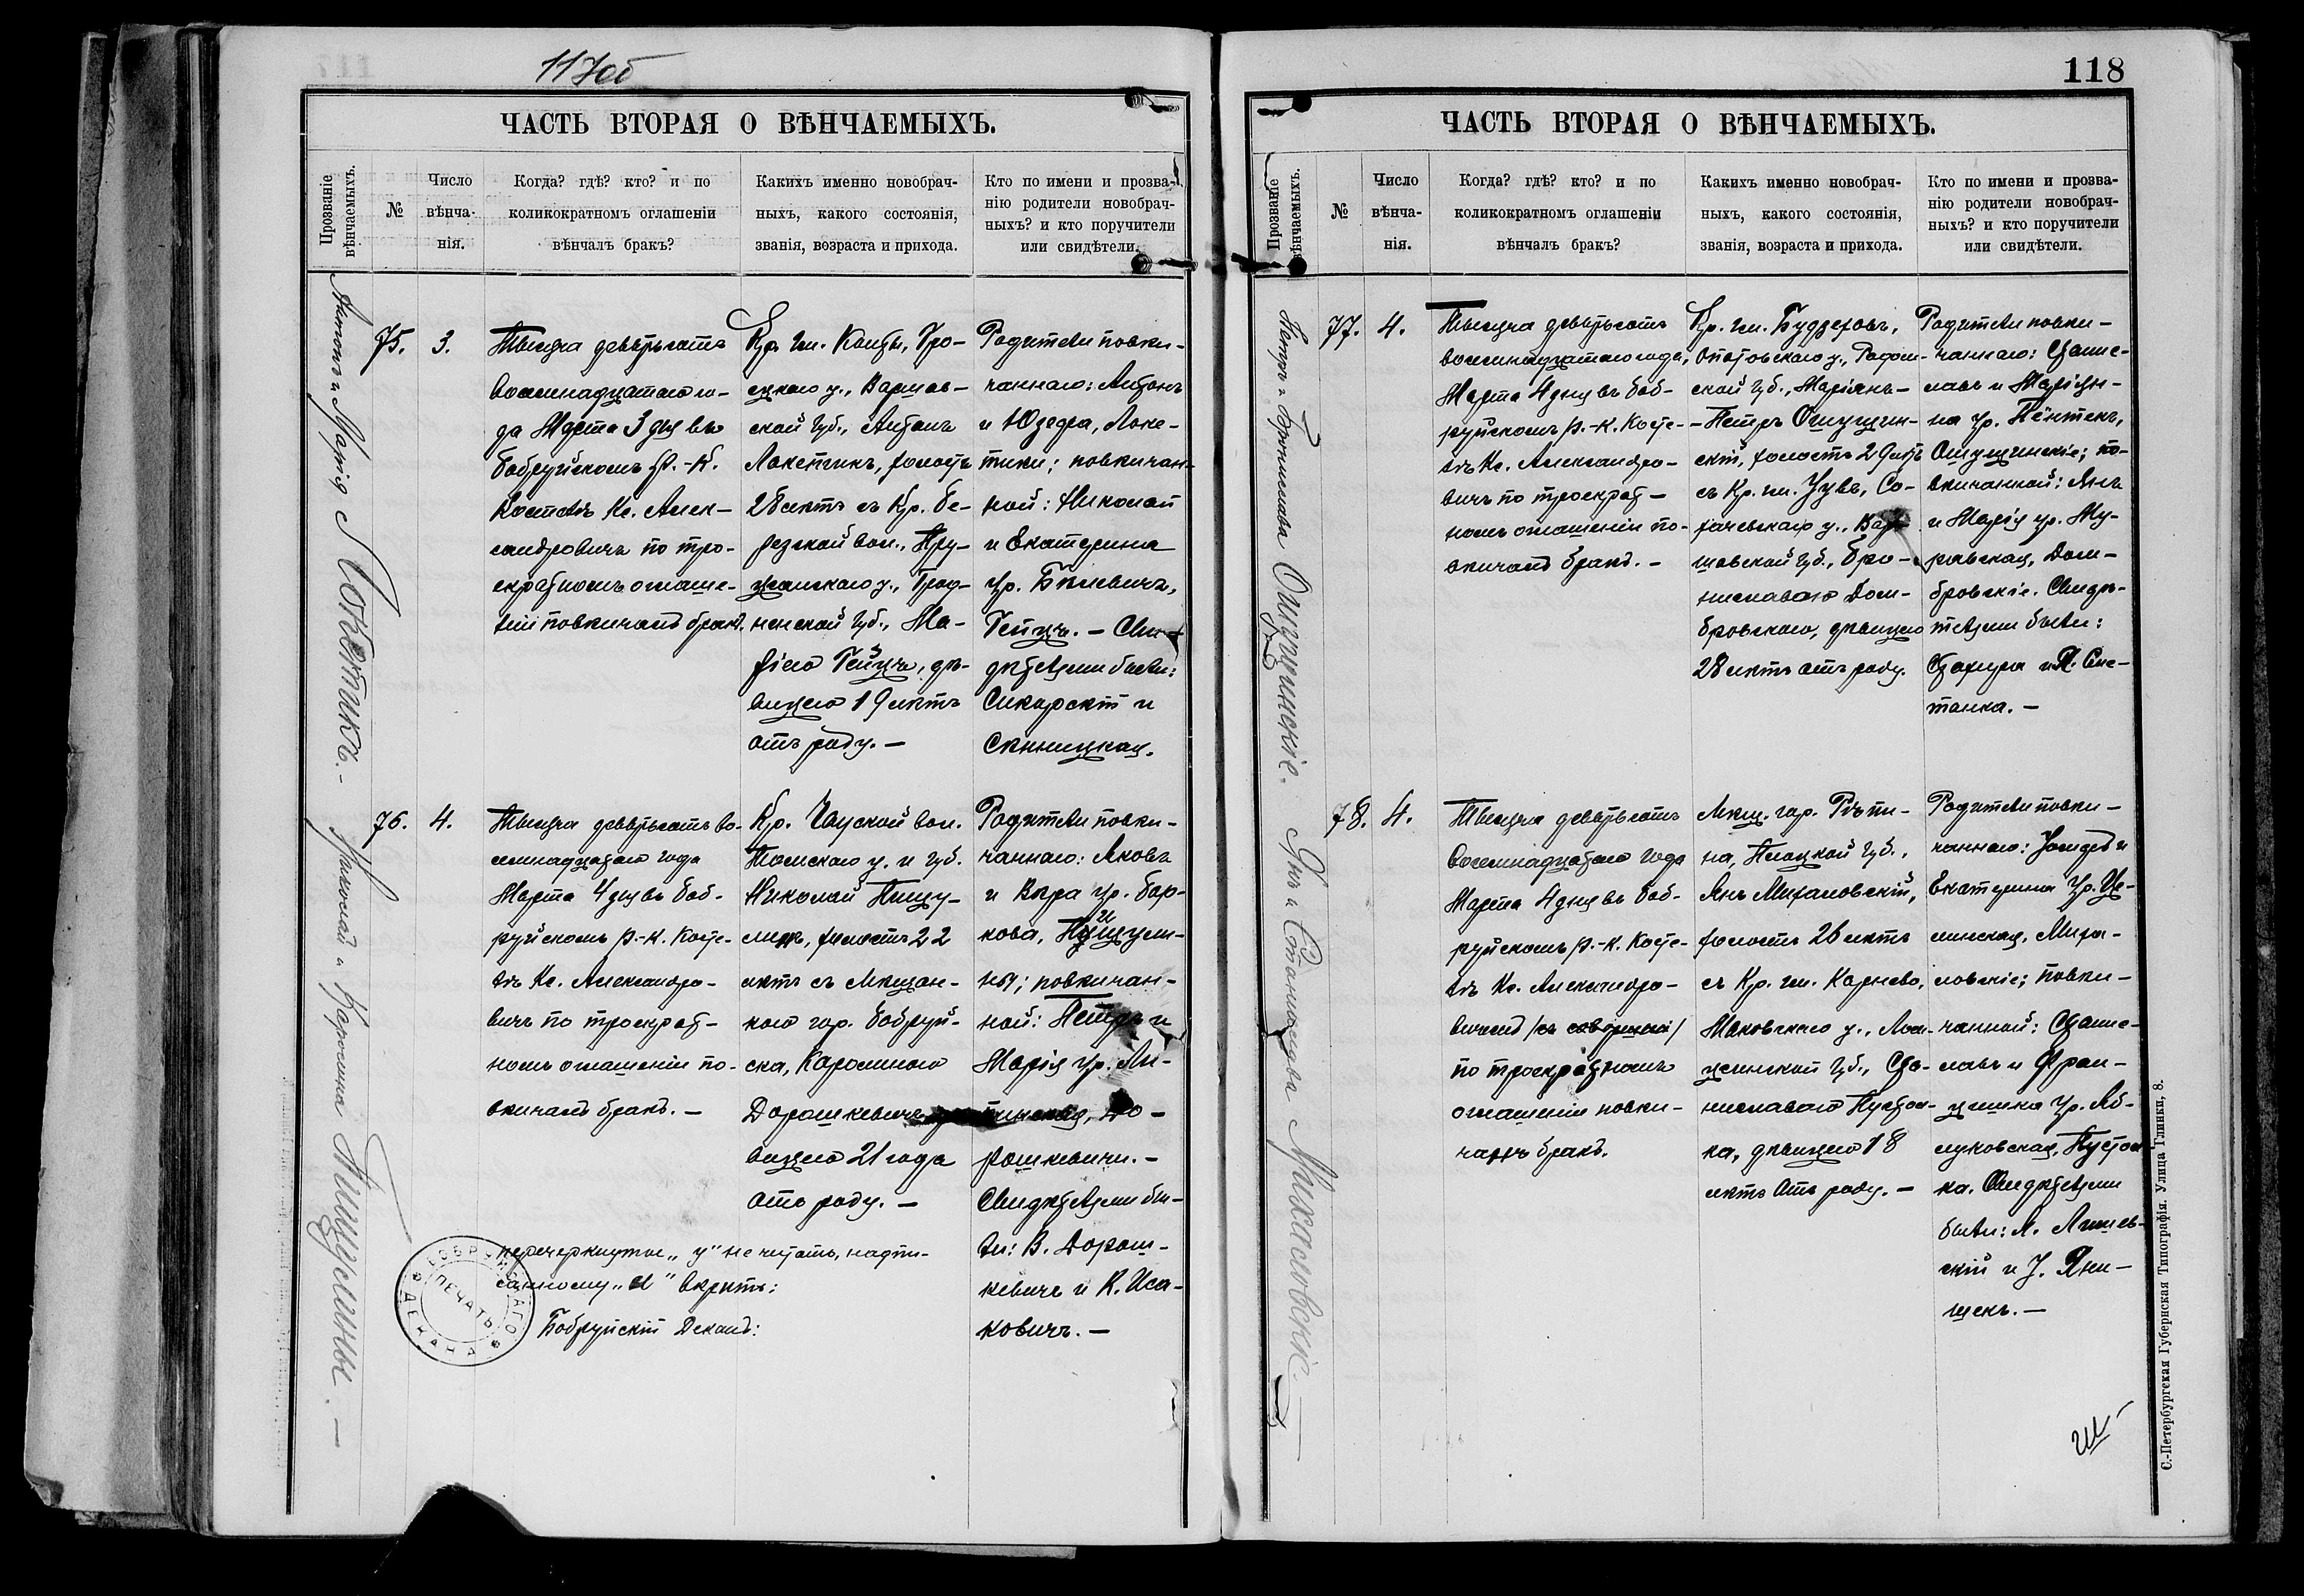 117об
ЧАСТЬ ВТОРАЯ О ВѢНЧАЕМЫХЪ.
Прозваніе
вѣнчаемыхъ.
№
Число
вѣнча-
нія.
Когда? гдѣ? кто? и по
коликократномъ оглашеніи
вѣнчалъ бракъ?
Какихъ именно новобрач-
ныхъ, какого состоянія,
званія, возраста и прихода.
Кто по имени и прозва-
нію родители новобрач-
ныхъ? и кто поручители
или свидѣтели.
Антонъ и Марія Локетикъ.-
75.
3.
Тысяча девятьсотъ
восемнадцатаго го-
да Марта 3 дня въ
Бобруйскомъ Р.-К.
Костелѣ Кс. Алек-
сандровичъ по тро-
екратномъ оглаше-
ніи повѣнчалъ бракъ.
Кр. гм. Конты, Гро-
ецкаго у., Варшав-
ской губ., Антонъ
Локетикъ, холостъ
28 лѣтъ съ Кр. Бе-
резской вол., Пру-
жанскаго у., Грод-
ненской губ., Ма-
ріею Гейцъ, дѣ-
вицею 19 лѣтъ
отъ роду. —
Родители повѣн-
чаннаго: Антонъ
и Юзефа, Локе-
тики; повѣнчан-
ной: Николай
и Екатерина
ур. Бѣлевичъ,
Гейцъ. — Сви-
дѣтелями были:
Сикорскій и
Скиницкая.
Николай и Каролина Пищулины. —
76.
4.
Тысяча девятьсотъ во-
семнадцатаго года
Марта 4 дня въ Боб-
руйскомъ р.-к. Косте-
лѣ Кс. Александро-
вичъ по троекрат-
номъ оглашеніи по-
вѣнчалъ бракъ. —
Кр. Чауской вол.
Томскаго у. и губ.
Николай Пищу-
линъ, холостъ 22
лѣтъ съ Мѣщан-
кою гор. Бобруй-
ска, Каролиною
Дорошкевичъ
вицею 21 года
отъ роду. —
Родители повѣн-
чаннаго: Яковъ
и Вѣра ур. Бар-
кова, Пищули-
ны; повѣнчан-
ной: Петръ и
Марія ур. Ли-
пинская, До-
рошкевичи. —
Свидѣтелями бы-
ли: В. Дорош-
кевичъ и К. Иса-
ковичъ. —
перечеркнутое „у" не читать, надпи-
санному „и" вѣрить:
Бобруйскій Деканъ:
БОБРУЙСКАГО ДЕКАНА
ПЕЧАТЬ
118
ЧАСТЬ ВТОРАЯ О ВѢНЧАЕМЫХЪ.
Прозваніе
вѣнчаемыхъ.
№
Число
вѣнча-
нія.
Когда? гдѣ? кто? и по
коликократномъ оглашеніи
вѣнчалъ бракъ?
Какихъ именно новобрач-
ныхъ, какого состоянія,
званія, возраста и прихода.
Кто по имени и прозва-
нію родители новобрач-
ныхъ? и кто поручители
или свидѣтели.
Петръ и Брониславa Ошущинскіе.
77.
4.
Тысяча девятьсотъ
восемнадцатаго года,
Марта 4 дня въ Боб-
руйскомъ р.-к. Косте-
лѣ Кс. Александро-
вичъ по троекрат-
номъ оглашеніи по-
вѣнчалъ бракъ. —
Кр. гм. Будзеховъ,
Опатовскаго у., Радом-
ской губ., Маріянъ-
-Петръ Ошущин-
скій, холостъ 29 лѣтъ
съ Кр. гм. Зувъ, Со-
хачевскаго у., Вар-
шавской губ., Бро-
ниславою Дом-
бровскою, дѣвицею
28 лѣтъ отъ роду.
Родители повѣн-
чаннаго: Станис-
лавъ и Маріян-
на ур. Пёнтекъ,
Ошущинскіе; по-
вѣнчанной: Янъ
и Марія ур. Му-
равская, Дом-
бровскіе. Свидѣ-
телями были:
Стахура и Я. Сме-
танка. —
Янъ и Станислава Михаловскіе. —
78.
4.
Тысяча девятьсотъ
восемнадцатаго года
Марта 4 дня въ Боб-
руйскомъ р.-к. Косте-
лѣ Кс. Александро-
по троекратномъ
оглашеніи повѣн-
чалъ бракъ.
Мѣщ. гор. Рыпи-
на, Плоцкой губ.,
Янъ Михаловскій,
холостъ 26 лѣтъ
съ Кр. гм. Карнево,
Маковскаго у., Лом-
жинской губ., Ста-
ниславою Пустол-
ка, дѣвицею 18
лѣтъ отъ роду. —
Родители повѣн-
чаннаго: Іосифъ и
Екатерина ур. Це-
линская, Миха-
ловскіе; повѣн-
чанной: Станис-
лавъ и Фран-
цишка ур. Яб-
луковская, Пустол-
ка. Свидѣтелями
были: А. Лишев-
скій и І. Яни-
щекъ. —
С.-Петербургская Губернская Типографія. Улица Глинки, 8.